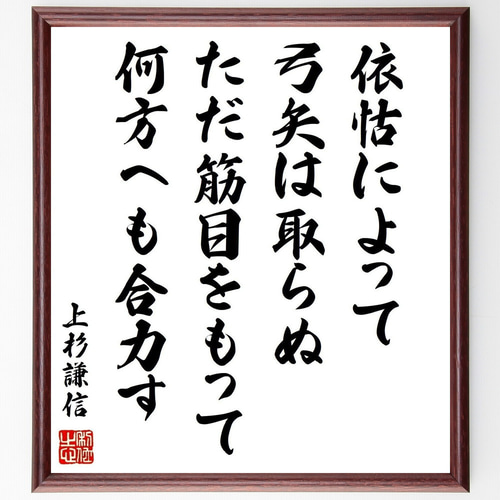 依怙によって
弓矢は取らぬ
ただ筋目をもって
何方へも合力す
上杉謙信